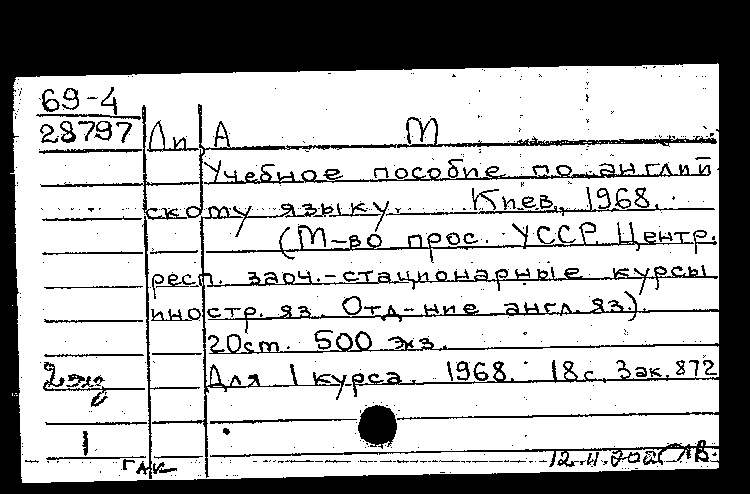 69-4
28797 Лп А М
Учебное пособие по англий
скому языку. Киев, 1968.
(М-во прос. УССР. Центр.
респ. заоч.-стационарные курсы
иностр. яз. Отд-ние англ. яз.).
20см. 500 экз.
2 экз Для 1 курса. 1968. 18 с. Зак. 872
1